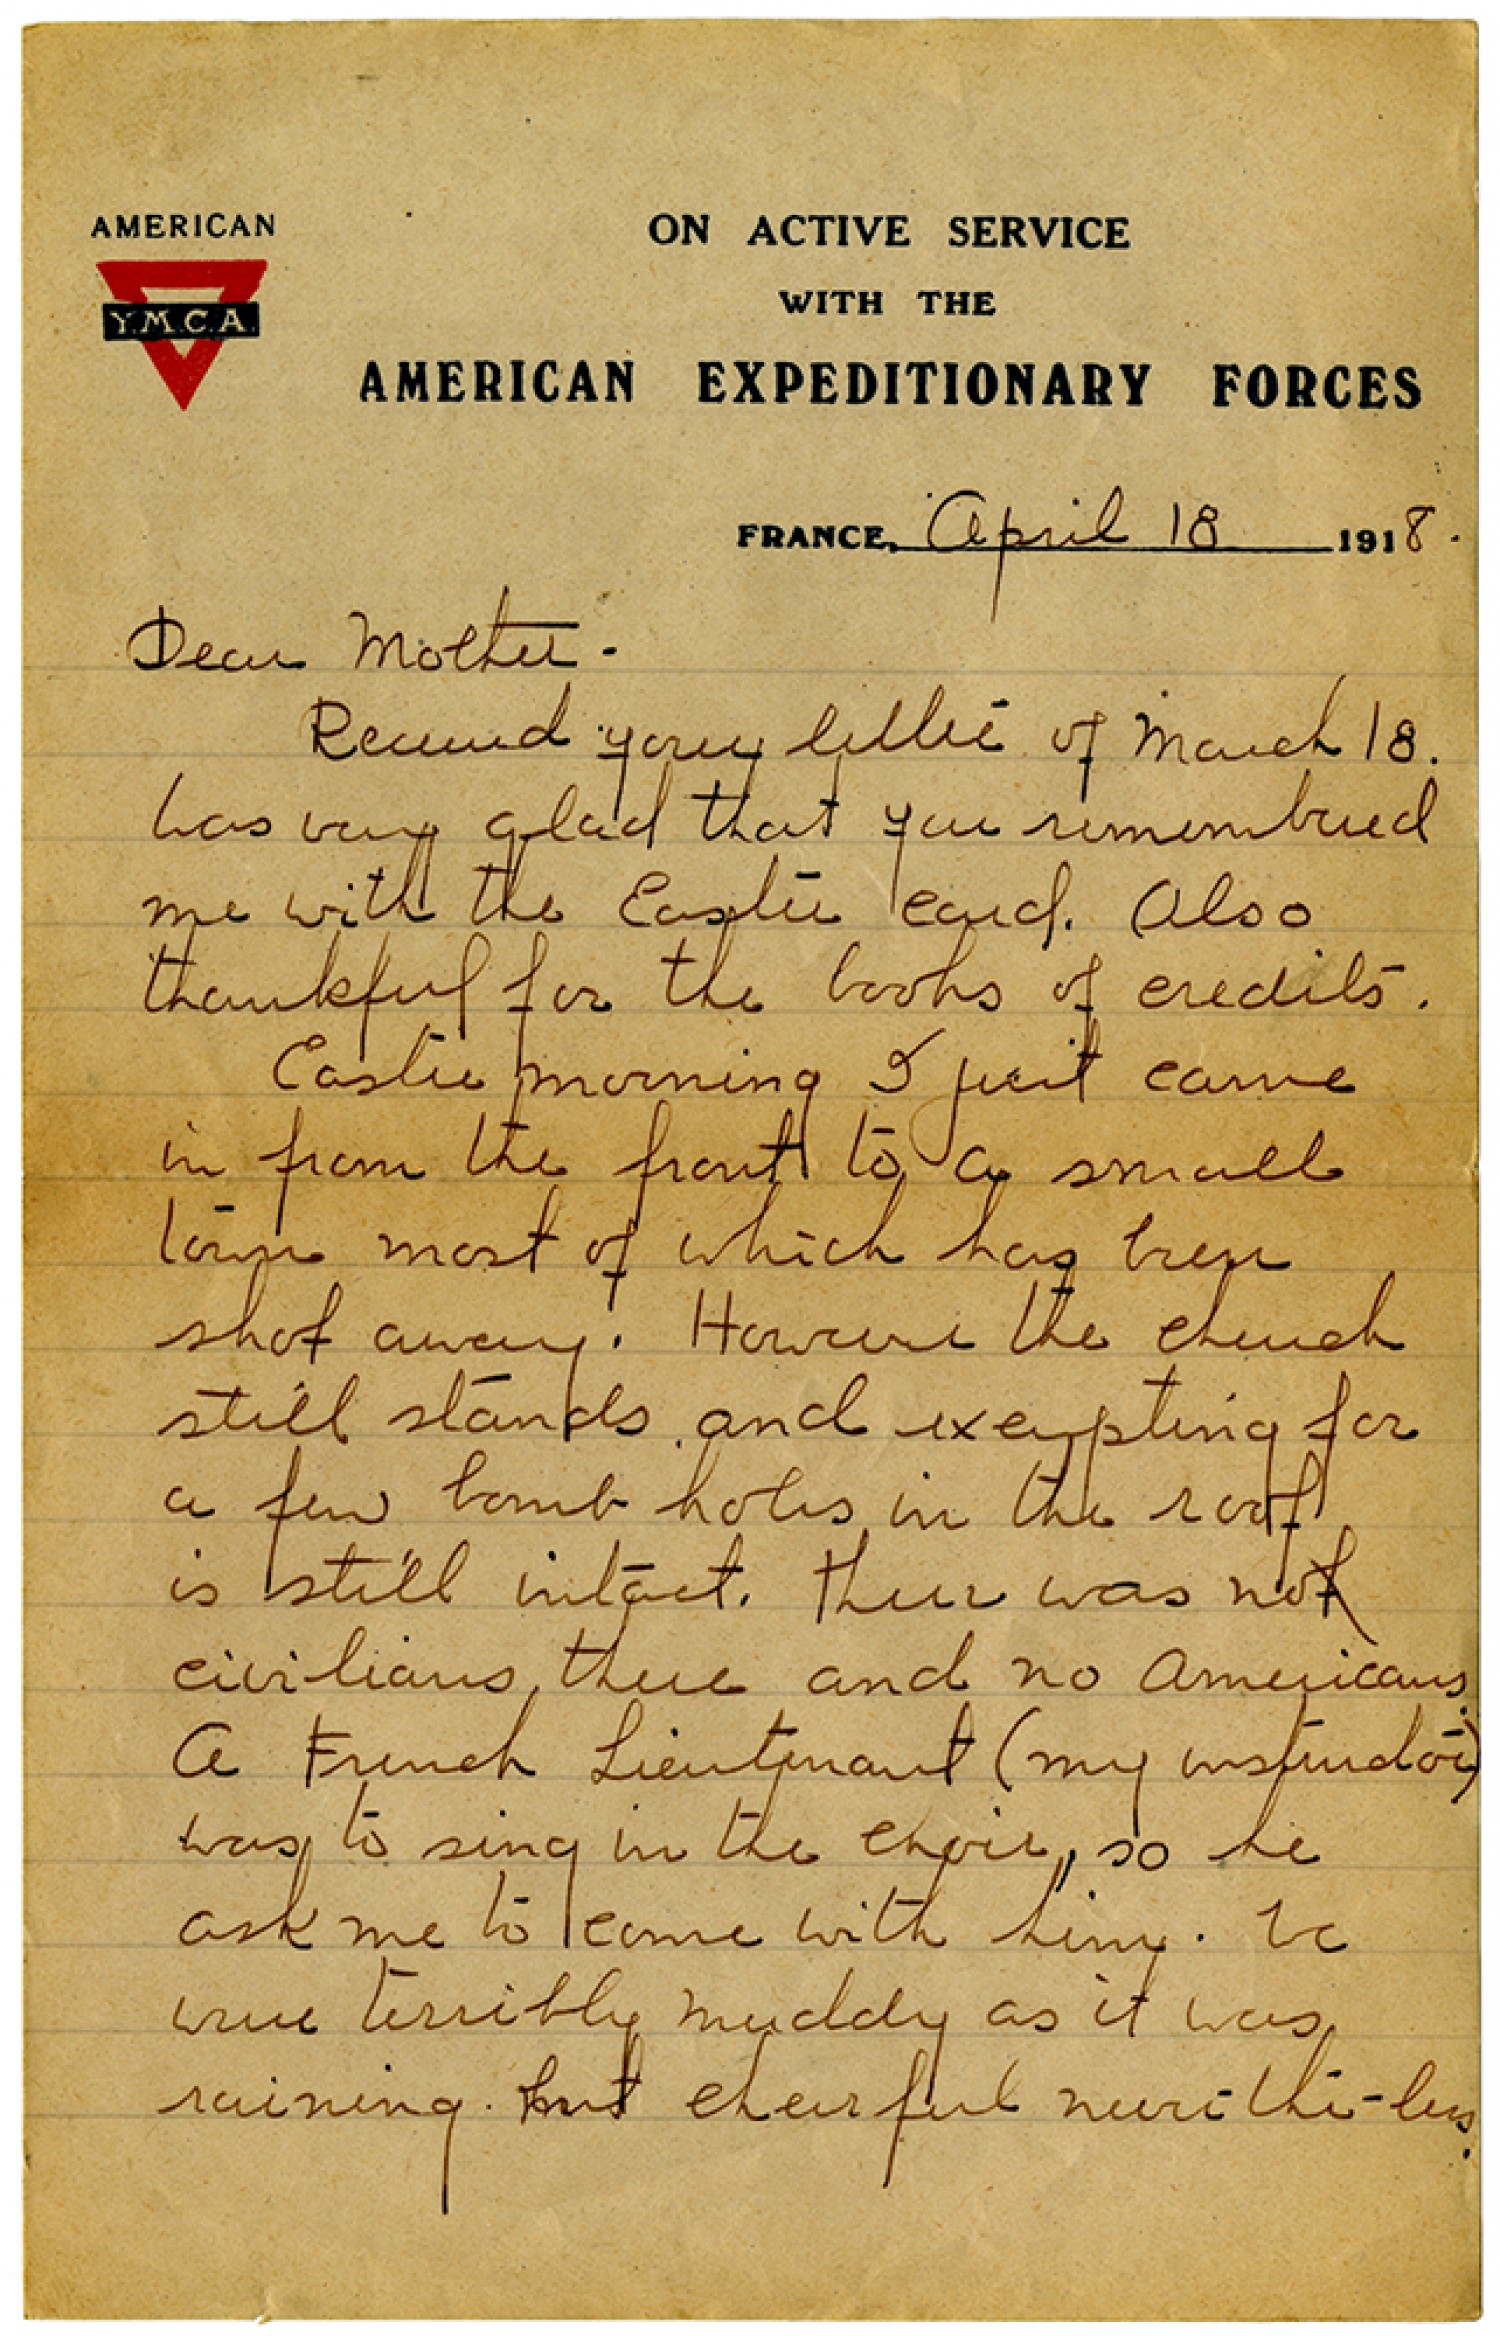 AMERICAN
Y.M.C.A.
ON ACTIVE SERVICE
WITH THE
AMERICAN EXPEDITIONARY FORCES
FRANCE, April 18 1918.
Dear Mother-
Received your letter of March 18.
Was very glad that you remembered
me with the Easter card. Also
thankful for the books of credits.
Easter morning I just came
in from the front to a small
town most of which has been
shot away. However the church
still stands and excepting for
a few bomb holes in the roof
is still intact. Their was no
civilians there and no Americans.
A French Lieutenant (my instructor)
was to sing in the choir, so he
ask me to come with him. We
were terribly muddy as it was
raining. but cheerful never-the-less.